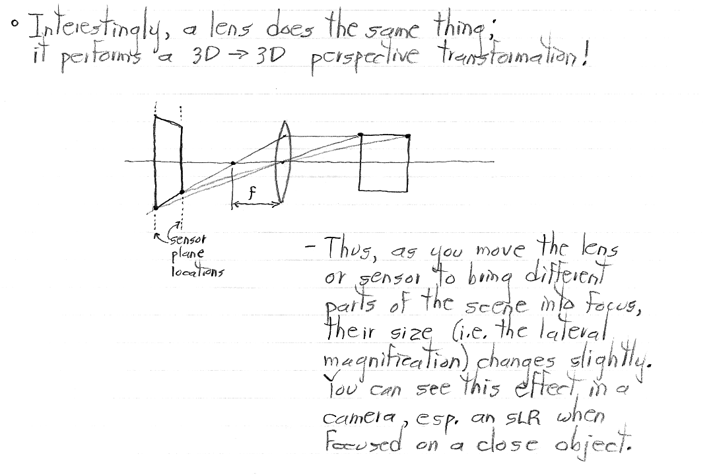 ° Interestingly, a lens does the same thing;
it performs a 3D → 3D perspective transformation!
f
sensor
plane
locations
- Thus, as you move the lens
or sensor to bring different
parts of the scene into focus,
their size (i.e. the lateral
magnification) changes slightly.
You can see this effect in a
camera, esp. an SLR when
focused on a close object.